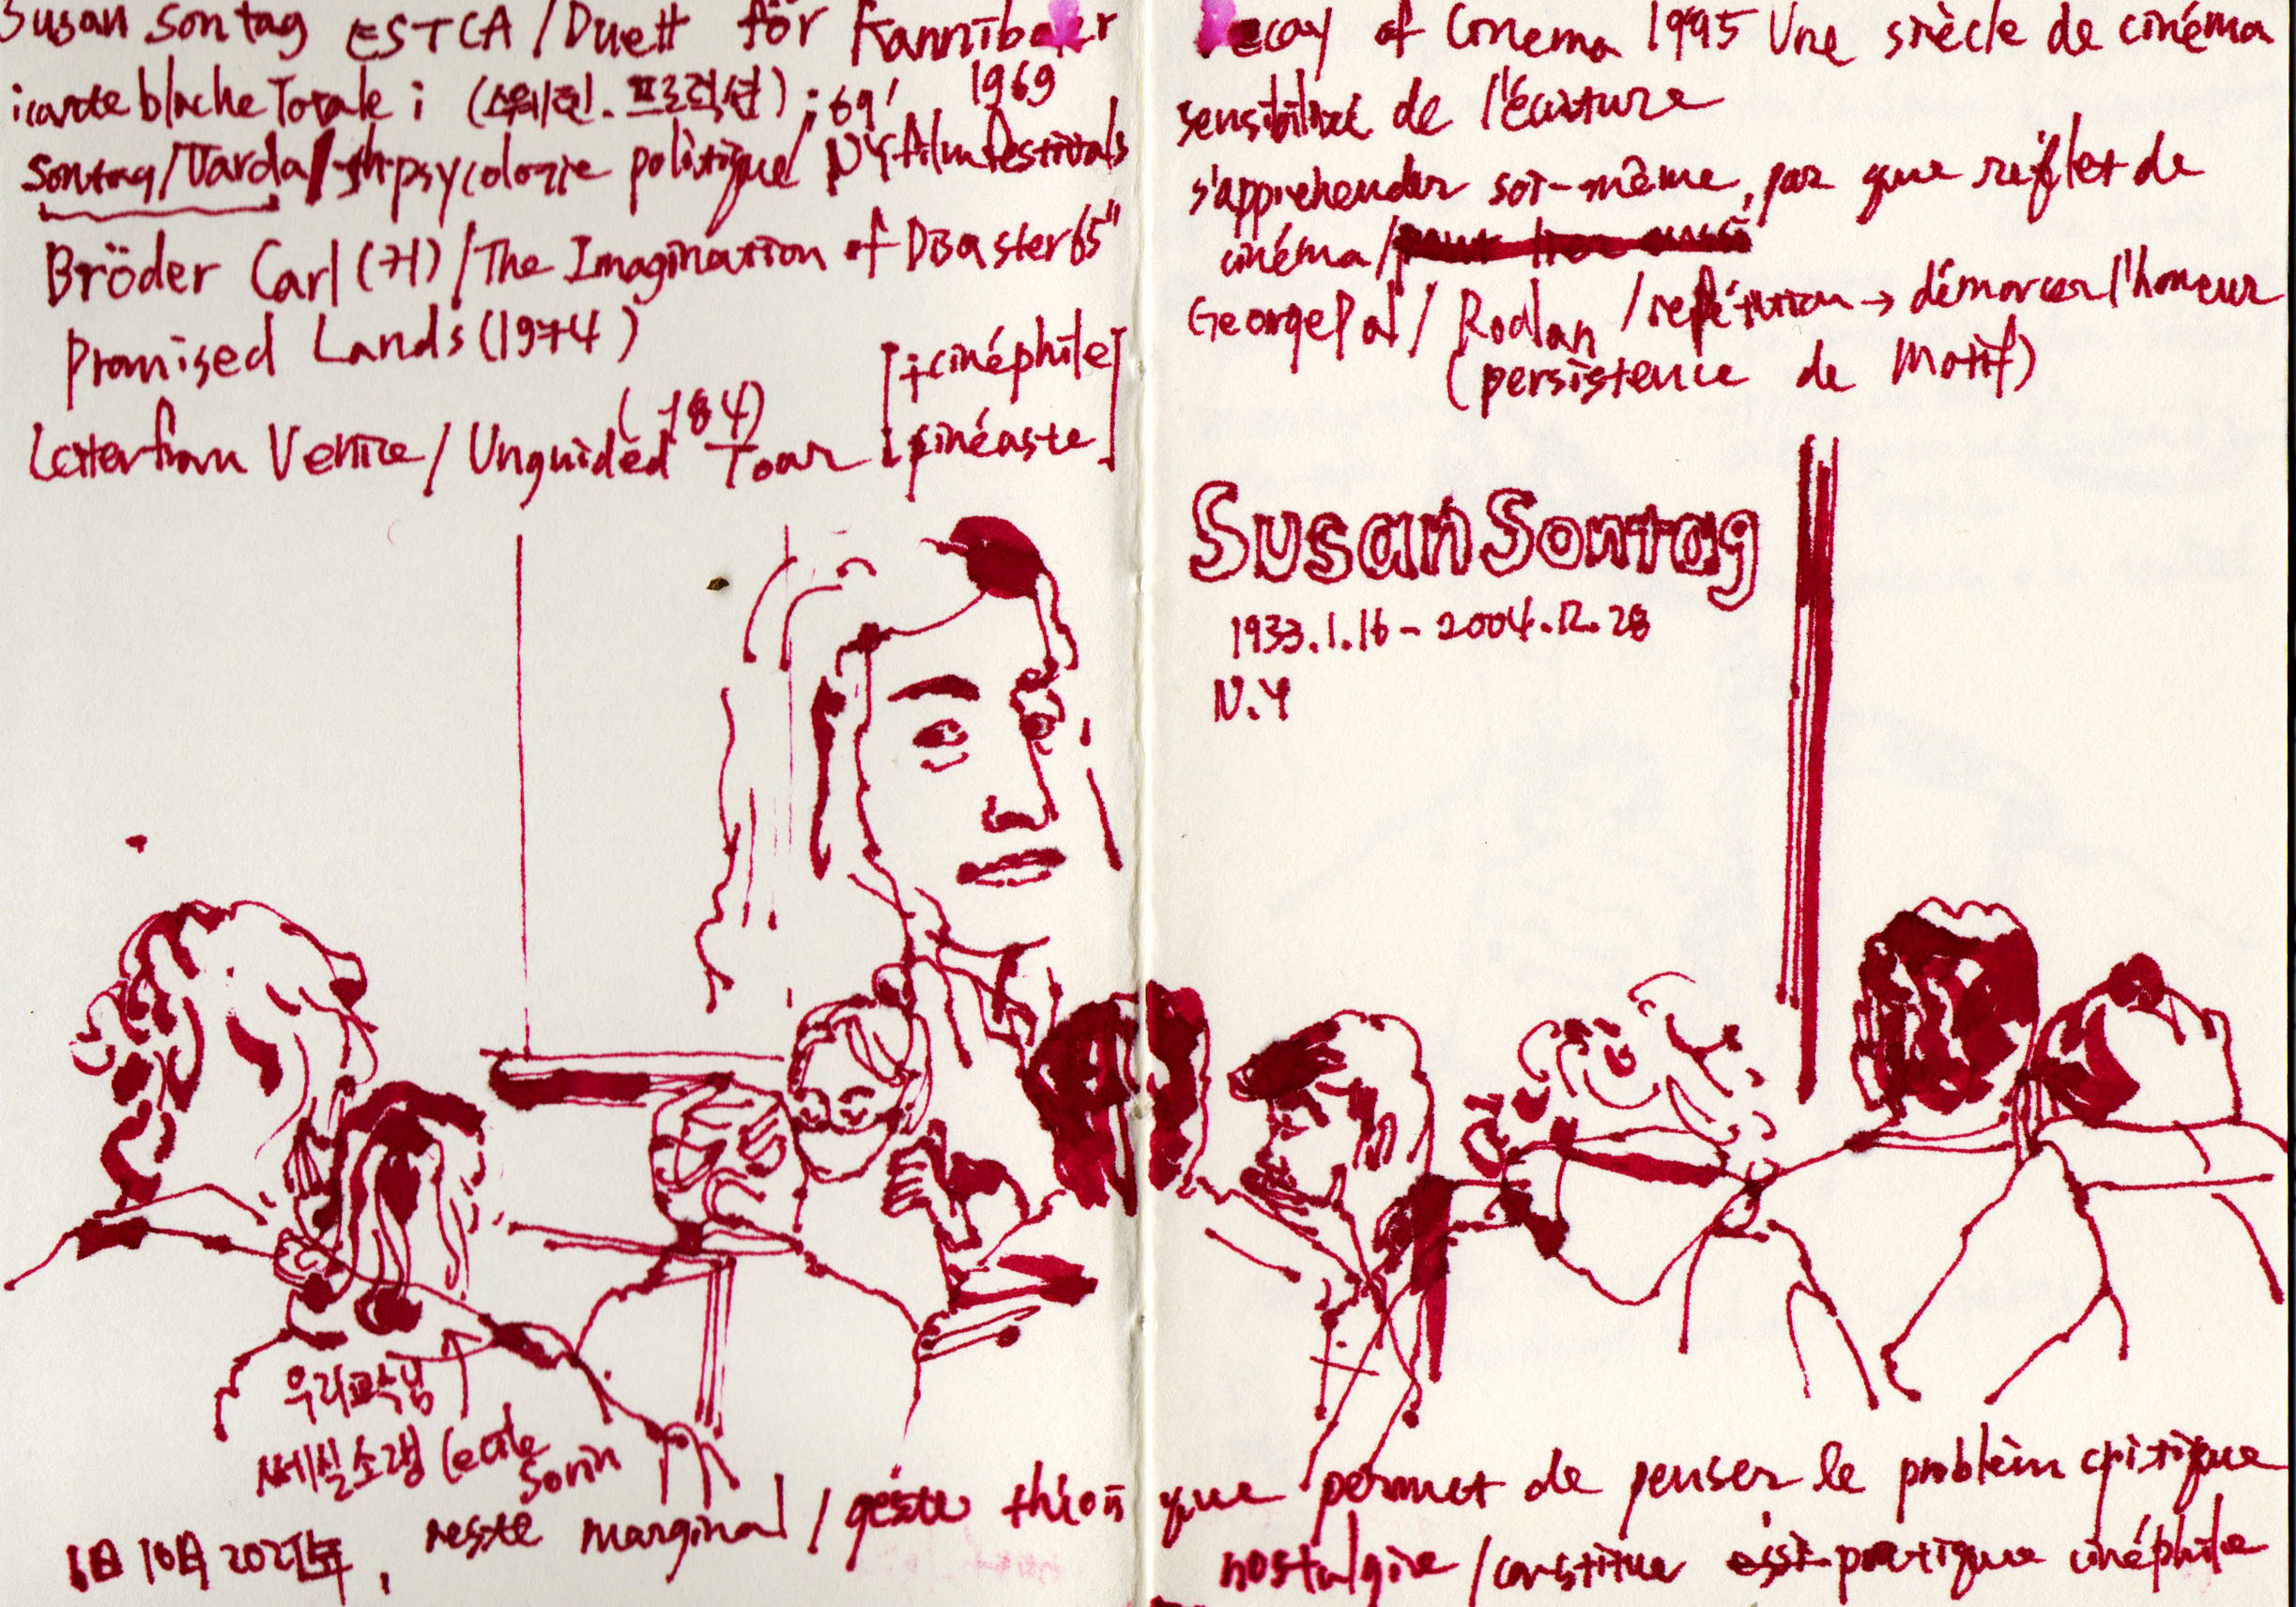 Susan Sontag ESTCA / Duett för Kannibaler
icarte blache Totale i (스웨덴. 프로덕션) ; 69' 1969
Sontag / Varda / psycologie politique / NY film festivals
Bröder Carl (71) / The Imagination of Disaster 65"
Promised Lands (1974)
Letter from Venice / Unguided Tour (184)
[+cinéphile]
[cinéaste]
Decay of Cinema 1995 Une siècle de cinéma
sensibilité de l'écriture
s'apprehender soi-même, par que reflet de
cinéma /
George Pal / Rodan / répétition → démarcer l'horreur
(persistence de Motif)
Susan Sontag
1933.1.16 - 2004.12.28
N.Y
우리교수님
쎄실소랭 Cecile
Sorin
6日 10月 2021年, reste marginal / geste théori que permet de penser le problèm critique
nostalgie / constituer pratique cinéphile